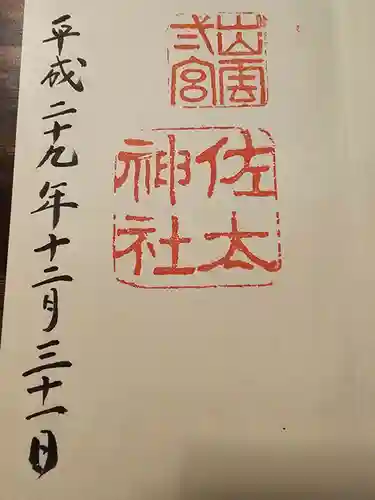 出雲
弐宮
佐太
神社
平成二十九年十二月三十一日